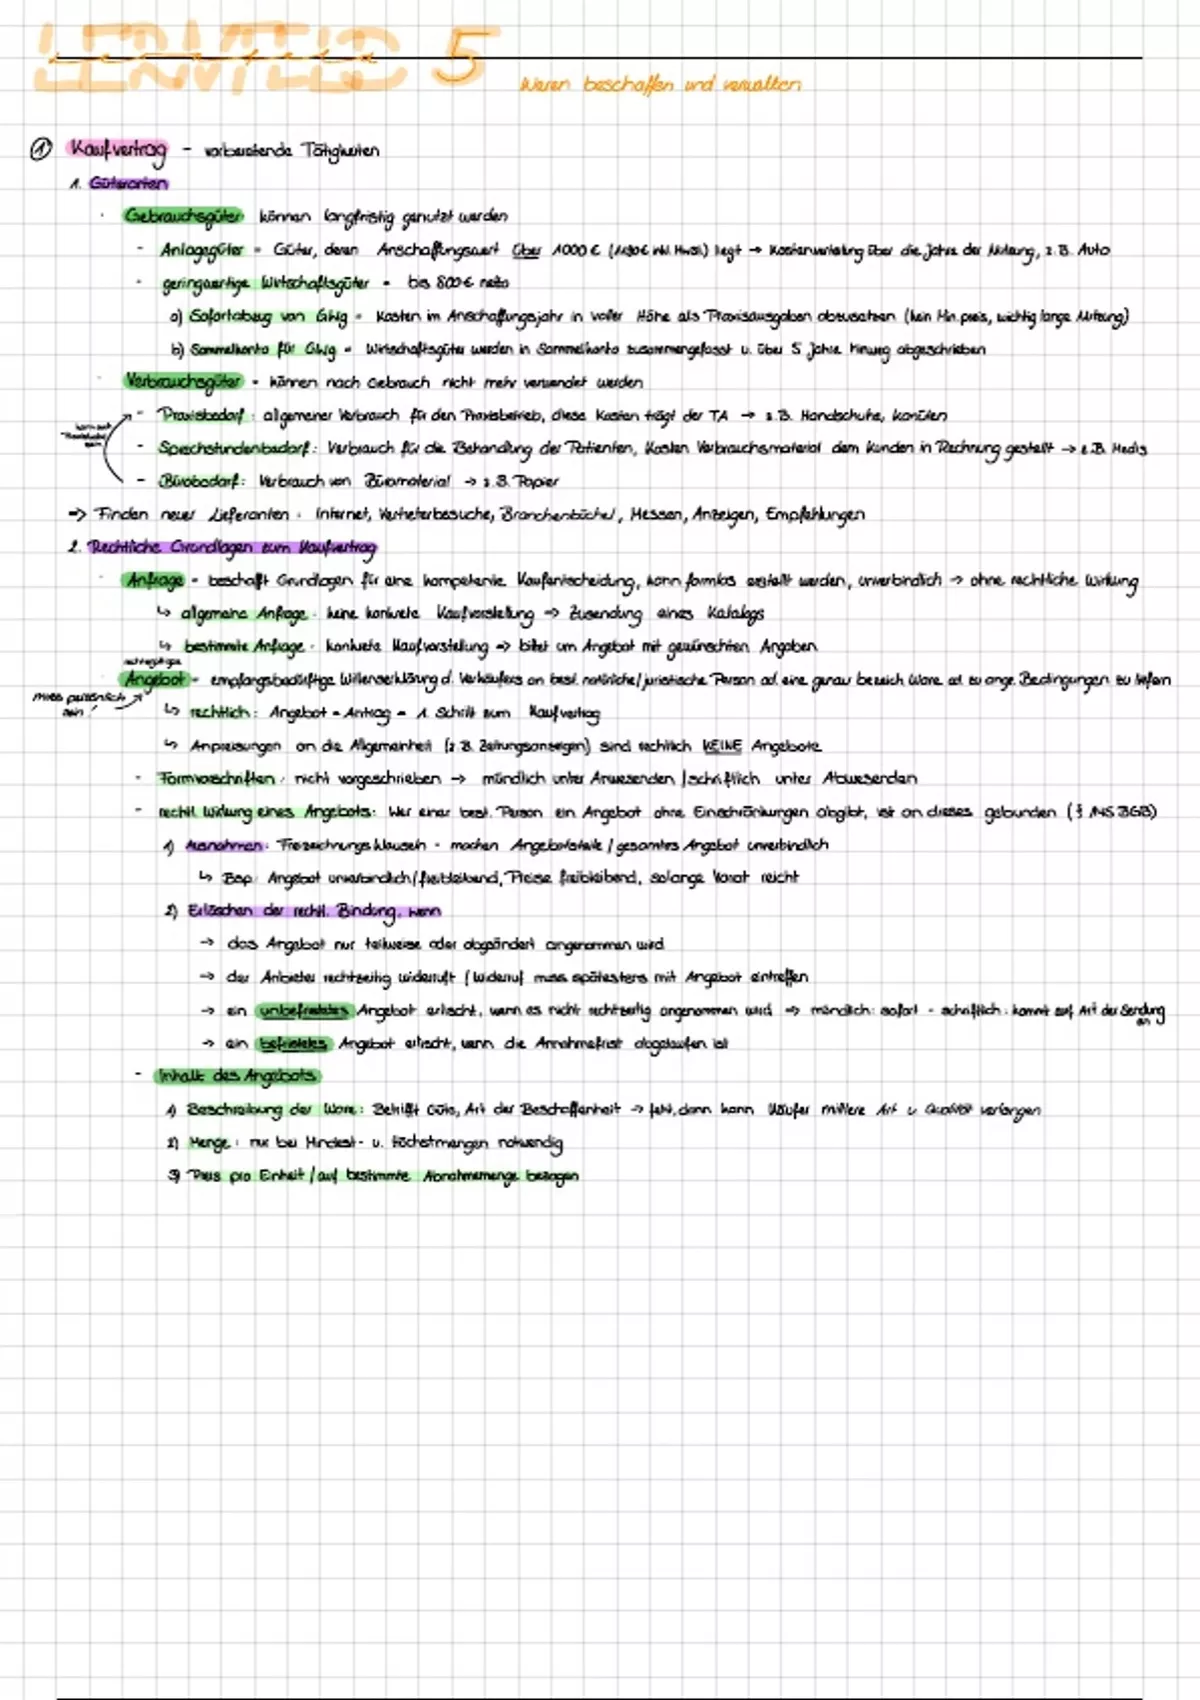 LERNFELD 5
Waren beschaffen und verwalten
① Kaufvertrag - vorbereitende Tätigkeiten
1. Güterarten
· Gebrauchsgüter können langfristig genutzt werden
- Anlagegüter = Güter, deren Anschaffungswert über 1000 € (1190€ inkl. MwSt.) liegt → Kostenverteilung über die Jahre der Nutzung, z.B. Auto
- geringwertige Wirtschaftsgüter = bis 800€ netto
a) Sofortabzug von GWG = Kosten im Anschaffungsjahr in voller Höhe als Praxisausgaben abzusetzen (kein Min.preis, wichtig lange Nutzung)
b) Sammelkonto für GWG = Wirtschaftsgüter werden in Sammelkonto zusammengefasst u. über 5 Jahre hinweg abgeschrieben
· Verbrauchsgüter = können nach Gebrauch nicht mehr verwendet werden
- Praxisbedarf: allgemeiner Verbrauch für den Praxisbetrieb, diese Kosten trägt der TA → z.B. Handschuhe, Kanülen
- Sprechstundenbedarf: Verbrauch für die Behandlung der Patienten, Kosten Verbrauchsmaterial dem Kunden in Rechnung gestellt → z.B. Medis
- Bürobedarf: Verbrauch von Büromaterial → z.B. Papier
=> Finden neuer Lieferanten: Internet, Vertreterbesuche, Branchenbücher, Messen, Anzeigen, Empfehlungen
2. Rechtliche Grundlagen zum Kaufvertrag
· Anfrage = beschafft Grundlagen für eine kompetente Kaufentscheidung, kann formlos erstellt werden, unverbindlich → ohne rechtliche Wirkung
↳ allgemeine Anfrage: keine konkrete Kaufvorstellung → Zusendung eines Katalogs
↳ bestimmte Anfrage: konkrete Kaufvorstellung → bittet um Angebot mit gewünschten Angaben
muss persönlich sein!
· Angebot = empfangsbedürftige Willenserklärung d. Verkäufers an best. natürliche/juristische Person od. eine genau bezeich. Ware od. zu ange. Bedingungen zu liefern
↳ rechtlich: Angebot = Antrag = 1. Schritt zum Kaufvertrag
↳ Anpreisungen an die Allgemeinheit (z.B. Zeitungsanzeigen) sind rechtlich KEINE Angebote
- Formvorschriften: nicht vorgeschrieben → mündlich unter Anwesenden / schriftlich unter Abwesenden
- rechtl. Wirkung eines Angebots: Wer einer best. Person ein Angebot ohne Einschränkungen abgibt, ist an dieses gebunden (§ 145 BGB)
1) Ausnahmen: Freizeichnungsklauseln = machen Angebotsteile / gesamtes Angebot unverbindlich
↳ Bsp: Angebot unverbindlich/freibleibend, Preise freibleibend, solange Vorrat reicht
2) Erlöschen der rechtl. Bindung, wenn
→ das Angebot nur teilweise oder abgeändert angenommen wird
→ der Anbieter rechtzeitig widerruft / Widerruf muss spätestens mit Angebot eintreffen
→ ein unbefristetes Angebot erlischt, wenn es nicht rechtzeitig angenommen wird → mündlich: sofort - schriftlich: kommt auf Art der Sendung an
→ ein befristetes Angebot erlischt, wenn die Annahmefrist abgelaufen ist
- Inhalt des Angebots
1) Beschreibung der Ware: Betrifft Güte, Art der Beschaffenheit → fehlt, dann kann Käufer mittlere Art u. Qualität verlangen
2) Menge: nur bei Mindest- u. Höchstmengen notwendig
3) Preis pro Einheit / auf bestimmte Abnahmemenge bezogen